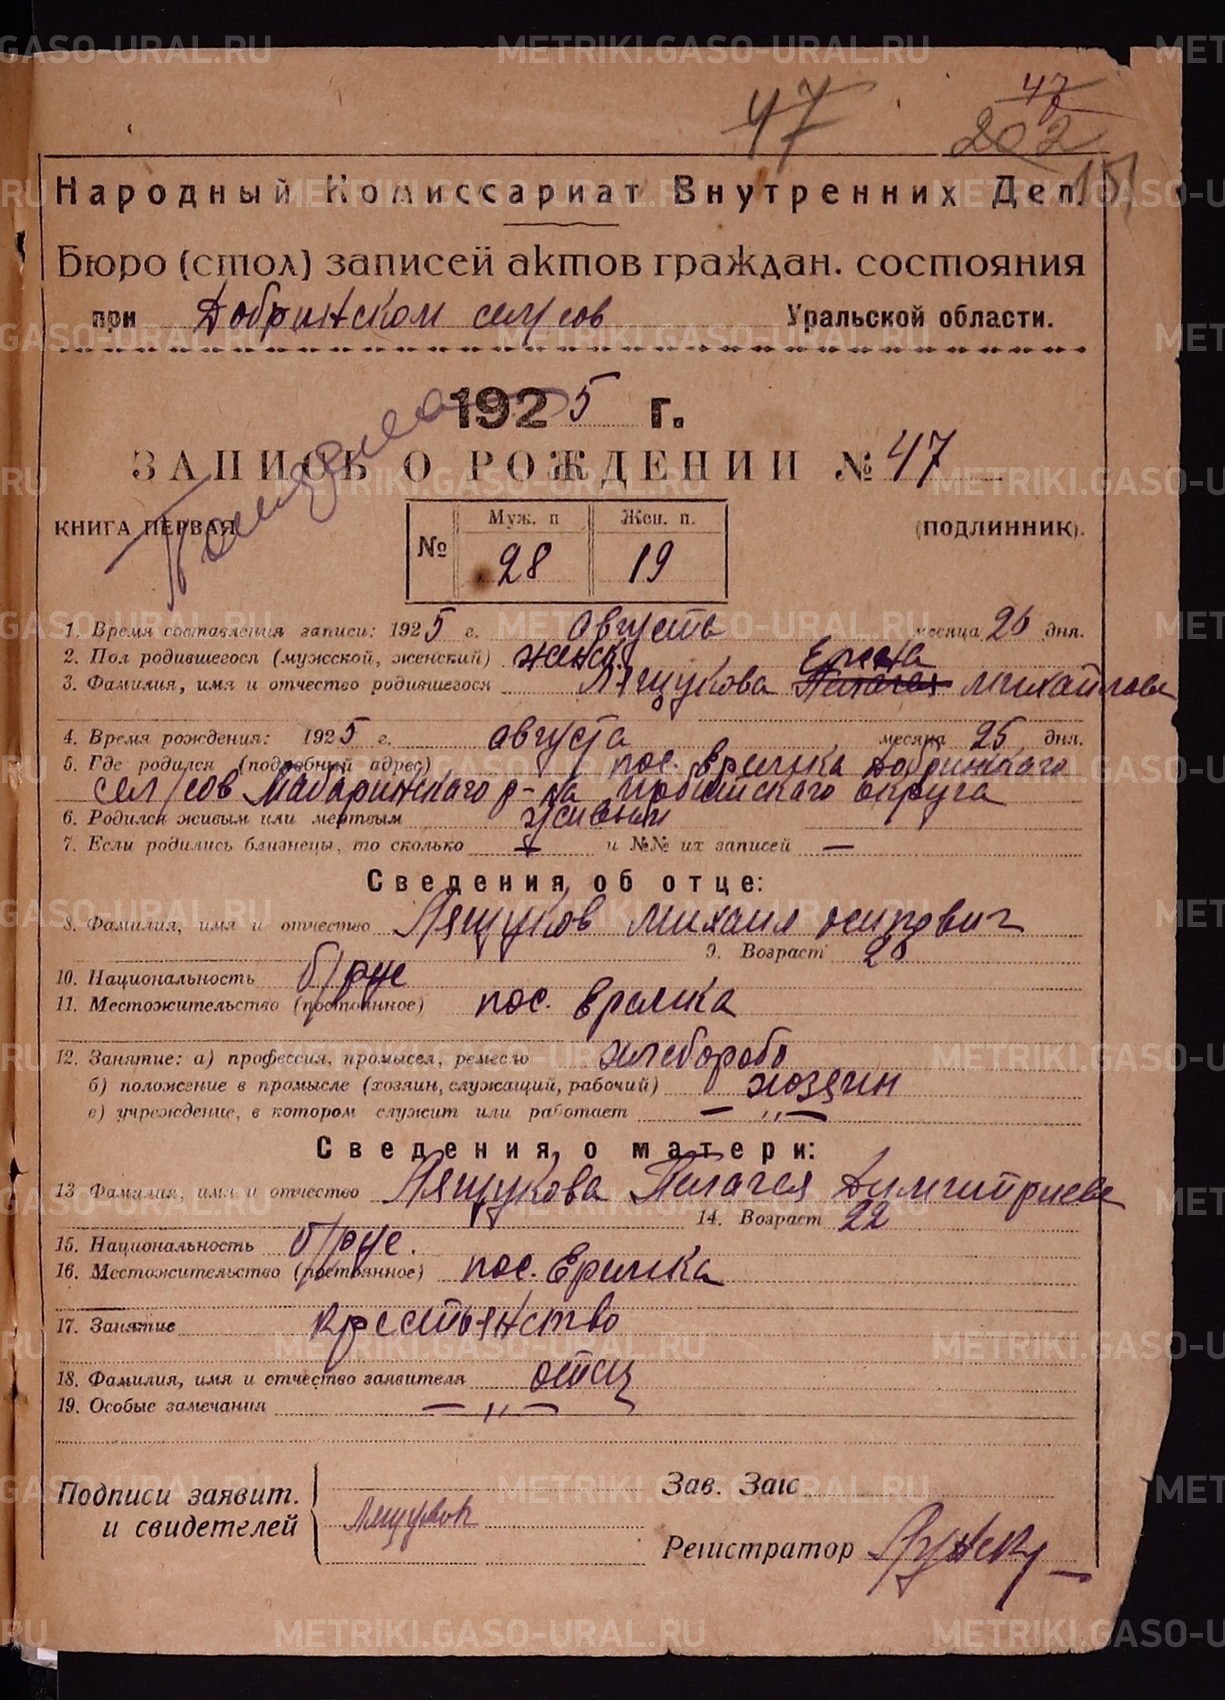 47
47
202
151
Народный Комиссариат Внутренних Дел.
Бюро (стол) записей актов граждан. состояния
при Добринском сел/сов Уральской области.
1925 г.
ЗАПИСЬ О РОЖДЕНИИ № 47
КНИГА ПЕРВАЯ (ПОДЛИННИК).
№ Муж. п Жен. п.
28 19
1. Время составления записи: 1925 г. августа месяца 26 дня.
2. Пол родившегося (мужской, женский) женск.
3. Фамилия, имя и отчество родившегося Лящукова Пелагея Михайлова
4. Время рождения: 1925 г. августа месяца 25 дня.
5. Где родился (подробный адрес) пос. Ерилка Добринского
сел/сов Мабаринского р-на Ирбитского округа
6. Родился живым или мертвым живым
7. Если родились близнецы, то сколько — и №№ их записей —
Сведения об отце:
8. Фамилия, имя и отчество Лящуков Михаил Осипович
9. Возраст 28
10. Национальность б/рус
11. Местожительство (постоянное) пос. Ерилка
12. Занятие: а) профессия, промысел, ремесло хлебороб
б) положение в промысле (хозяин, служащий, рабочий) хозяин
в) учреждение, в котором служит или работает — „ —
Сведения о матери:
13 Фамилия, имя и отчество Лящукова Пелагея Димитриева
14. Возраст 22
15. Национальность б/рус.
16. Местожительство (постоянное) пос. Ерилка
17. Занятие крестьянство
18. Фамилия, имя и отчество заявителя отец
19. Особые замечания — „ —
Подписи заявит. и свидетелей Лящуков
Зав. Загс
Регистратор
METRIKI.GASO-URAL.RU